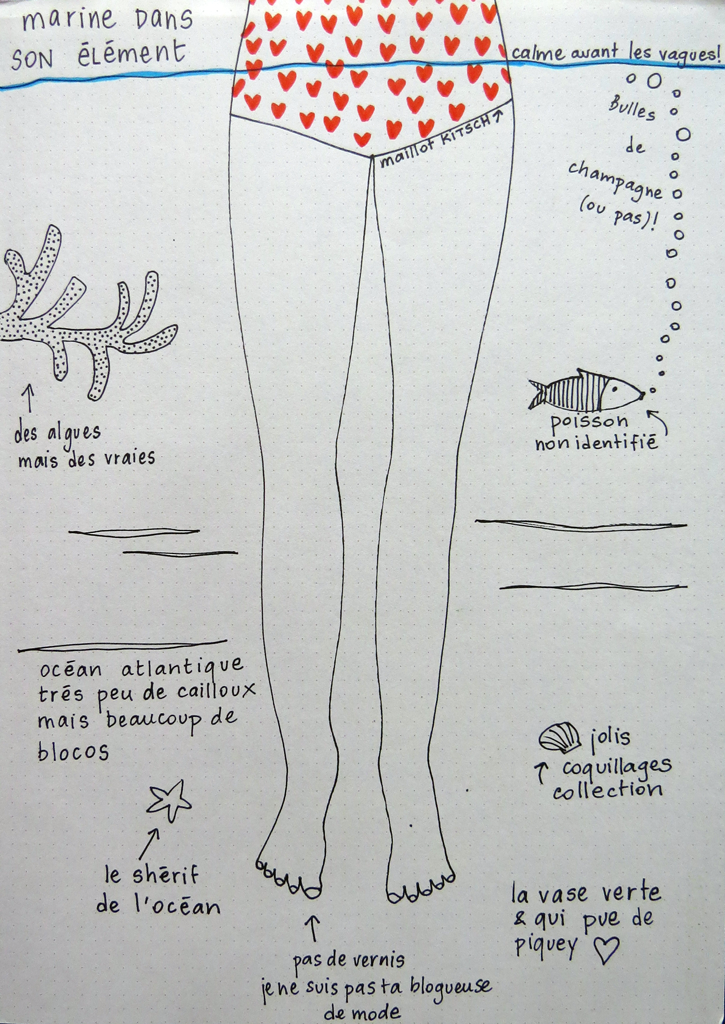 marine DANS
SON ÉLÉMENT
calme avant les vagues!
Bulles
de
champagne
(ou pas)!
maillot KITSCH
des algues
mais des vraies
poisson
non identifié
océan atlantique
trés peu de cailloux
mais beaucoup de
blocos
jolis
coquillages
collection
le shérif
de l'océan
la vase verte
& qui pue de
piquey
pas de vernis
je ne suis pas ta blogueuse
de mode